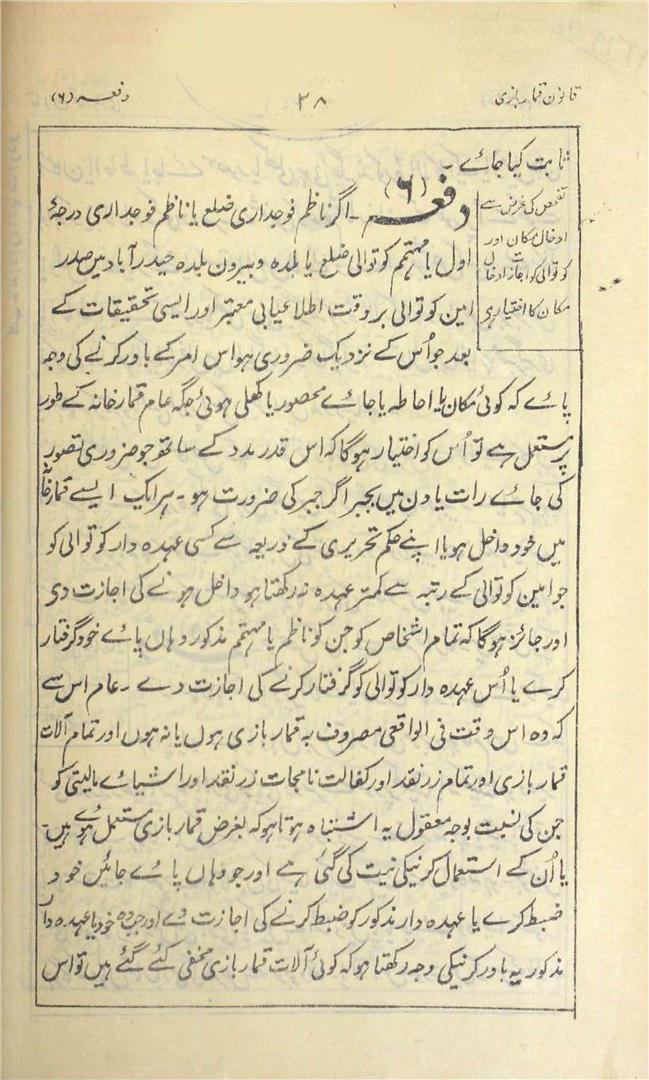 قانون قمار بازی
۲۸
دفعہ (۶)
ثابت کیا جائے۔
تفحص کی غرض سے
ادخال مکان اور
کوتوالی کو اجازت ادخال
مکان کا اختیار ہی
دفعہ (۶) ۔ اگر ناظم فوجداری ضلع یا ناظم فوجداری درجۂ
اول یا مہتمم کوتوالی ضلع یا بلدہ و بیرون بلدہ حیدرآباد میں صدر
امین کوتوالی بروقت اطلاعیابی معتبر اور ایسی تحقیقات کے
بعد جو اُس کے نزدیک ضروری ہو اس امر کے باور کرنے کی وجہ
پائے کہ کوئی مکان یا احاطہ یا جائے محصور یا کھلی ہوئی جگہ عام قمارخانہ کے طور
پر مستعمل ہے تو اُس کو اختیار ہوگا کہ اس قدر مدد کے ساتھ جو ضروری تصور
کی جائے رات یا دن میں بجبر اگر جبر کی ضرورت ہو ۔ ہر ایک ایسے قمارخانہ
میں خود داخل ہو یا اپنے حکم تحریری کے ذریعہ سے کسی عہدہ دار کوتوالی کو
جو امین کوتوالی کے رتبہ سے کمتر عہدہ نہ رکھتا ہو داخل ہونے کی اجازت دی
اور جائز ہوگا کہ تمام اشخاص کو جن کو ناظم یا مہتمم مذکور وہاں پائے خود گرفتار
کرے یا اُس عہدہ دار کوتوالی کو گرفتار کرنے کی اجازت دے ۔ عام اس سے
کہ وہ اس وقت فی الواقع مصروف بہ قمار بازی ہوں یا نہ ہوں اور تمام آلات
قمار بازی اور تمام زر نقد اور کفالت نامجات زر نقد اور اشیائے مالیتی کو
جن کی نسبت بوجہ معقول یہ اشتباہ ہوتا ہو کہ بغرض قمار بازی مستعمل ہوے ہیں۔
یا اُن کے استعمال کرنیکی نیت کی گئی ہے اور جو وہاں پائے جائیں خود
ضبط کرے یا عہدہ دار مذکور کو ضبط کرنے کی اجازت دے اور جب وہ خود یا عہدہ دار
مذکور یہ باور کرنیکی وجہ رکھتا ہو کہ کوئی آلات قمار بازی مخفی کئے گئے ہیں تو اس